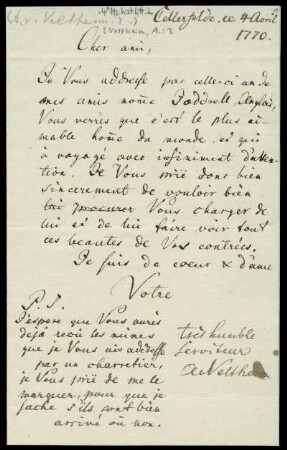 Cellerfelde, ce 4 Avril
1770.
Cher ami,
Je Vous addresse par celle-ci un de
mes amis nommé Joddrell, Anglois,
Vous verrés que c'est le plus ai-
mable home du monde, et qui
à voyagé avec infiniment d'aten-
tion. Je Vous prie donc bien
sincerement de vouloir bien
lui procurer Vous charger de
lui et de lui faire voir tout
ces beautes de Vos contrées.
Je suis de coeur & d'ame
Votre
très humble
Serviteur
AvVeltheim
P. S.
J'espere que Vous aurés
déja recu les mines
que je Vous ais addresse
par un charretier,
je Vous prie de me le
marquer, pour que je
sache s'ils sont bien
arrivé où non.